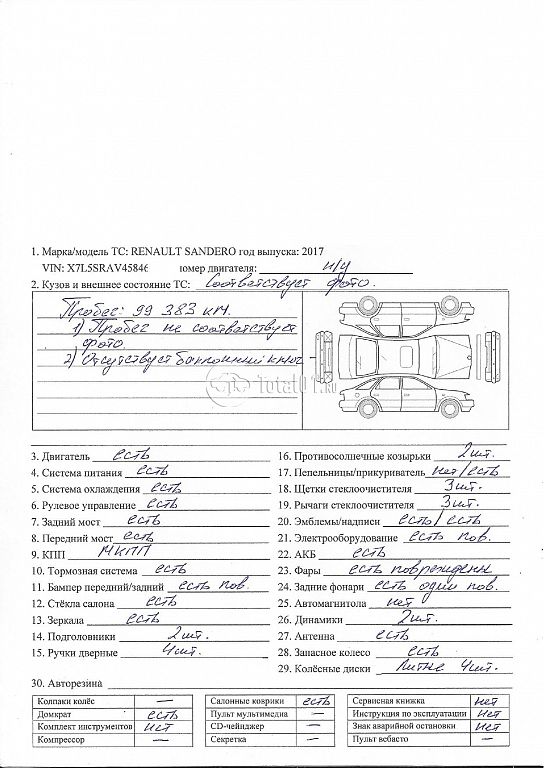 1. Марка/модель ТС: RENAULT SANDERO год выпуска: 2017
VIN: X7L5SRAV45846 номер двигателя: н/у
2. Кузов и внешнее состояние ТС: Соответствует фото.
Пробег: 99 383 км.
1) Пробег не соответствует
фото
2) Отсутствует баллонный ключ
Total01.ru
3. Двигатель есть
4. Система питания есть
5. Система охлаждения есть
6. Рулевое управление есть
7. Задний мост есть
8. Передний мост есть
9. КПП МКПП
10. Тормозная система есть
11. Бампер передний/задний есть пов.
12. Стёкла салона есть
13. Зеркала есть
14. Подголовники 2 шт.
15. Ручки дверные 4 шт.
16. Противосолнечные козырьки 2 шт.
17. Пепельницы/прикуриватель нет/есть
18. Щетки стеклоочистителя 3 шт.
19. Рычаги стеклоочистителя 3 шт.
20. Эмблемы/надписи есть/есть
21. Электрооборудование есть пов.
22. АКБ есть
23. Фары есть поврежден
24. Задние фонари есть один пов.
25. Автомагнитола нет
26. Динамики 2 шт.
27. Антенна есть
28. Запасное колесо есть
29. Колёсные диски Литые 4 шт.
30. Авторезина
Колпаки колёс —
Домкрат есть
Комплект инструментов нет
Компрессор —
Салонные коврики есть
Пульт мультимедиа —
CD-чейнджер —
Секретка —
Сервисная книжка нет
Инструкция по эксплуатации нет
Знак аварийной остановки нет
Пульт вебасто —